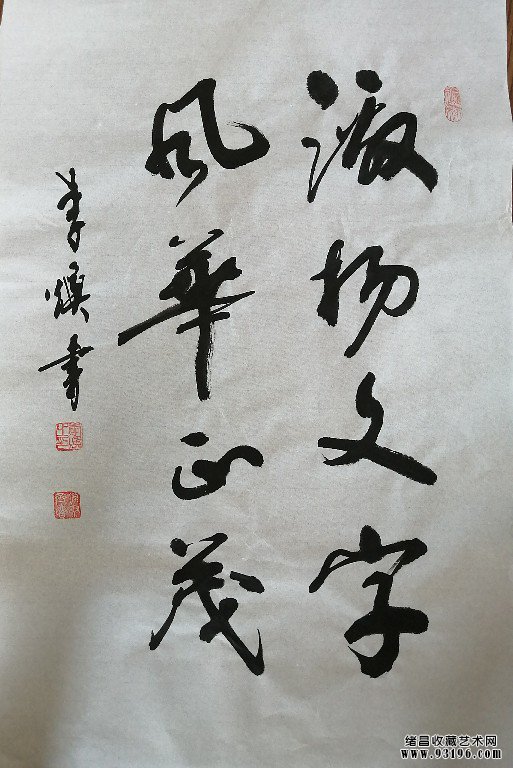 激扬文字
风華正茂
李焕書
绪昌收藏艺术网
www.93196.com